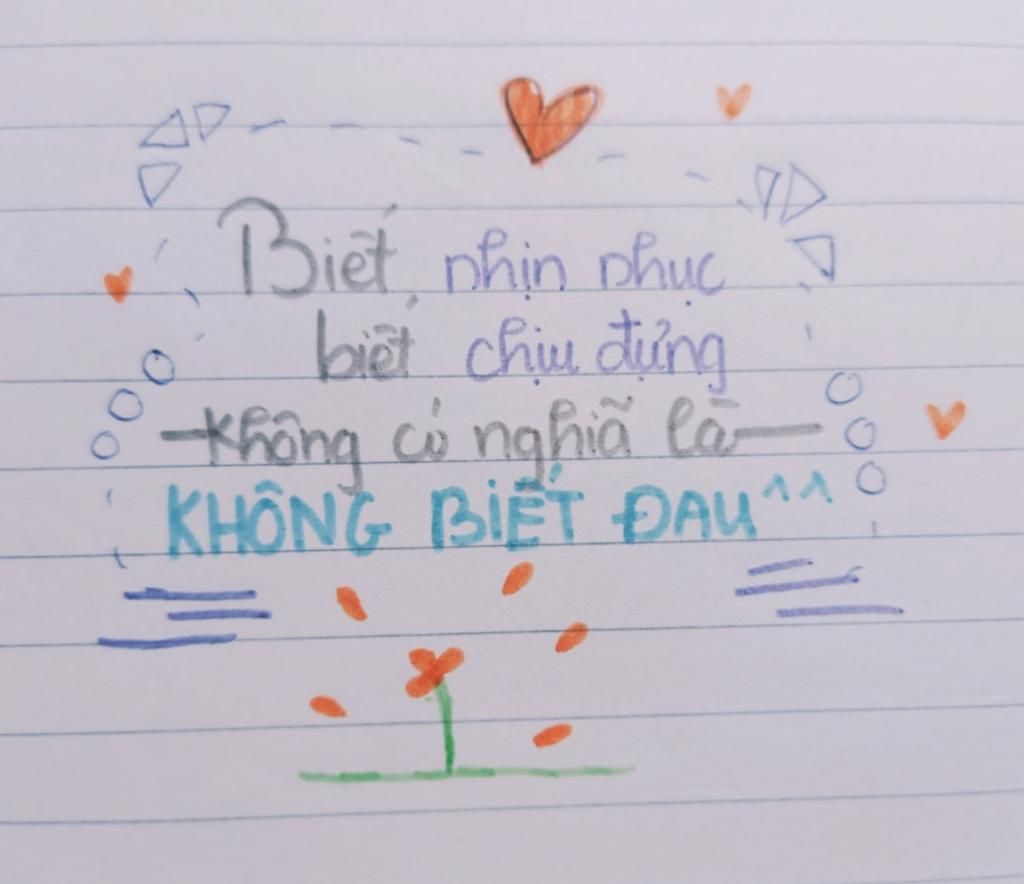 Biết, nhịn nhục
biết chịu đựng
—không có nghĩa là—
KHÔNG BIẾT ĐAU^^